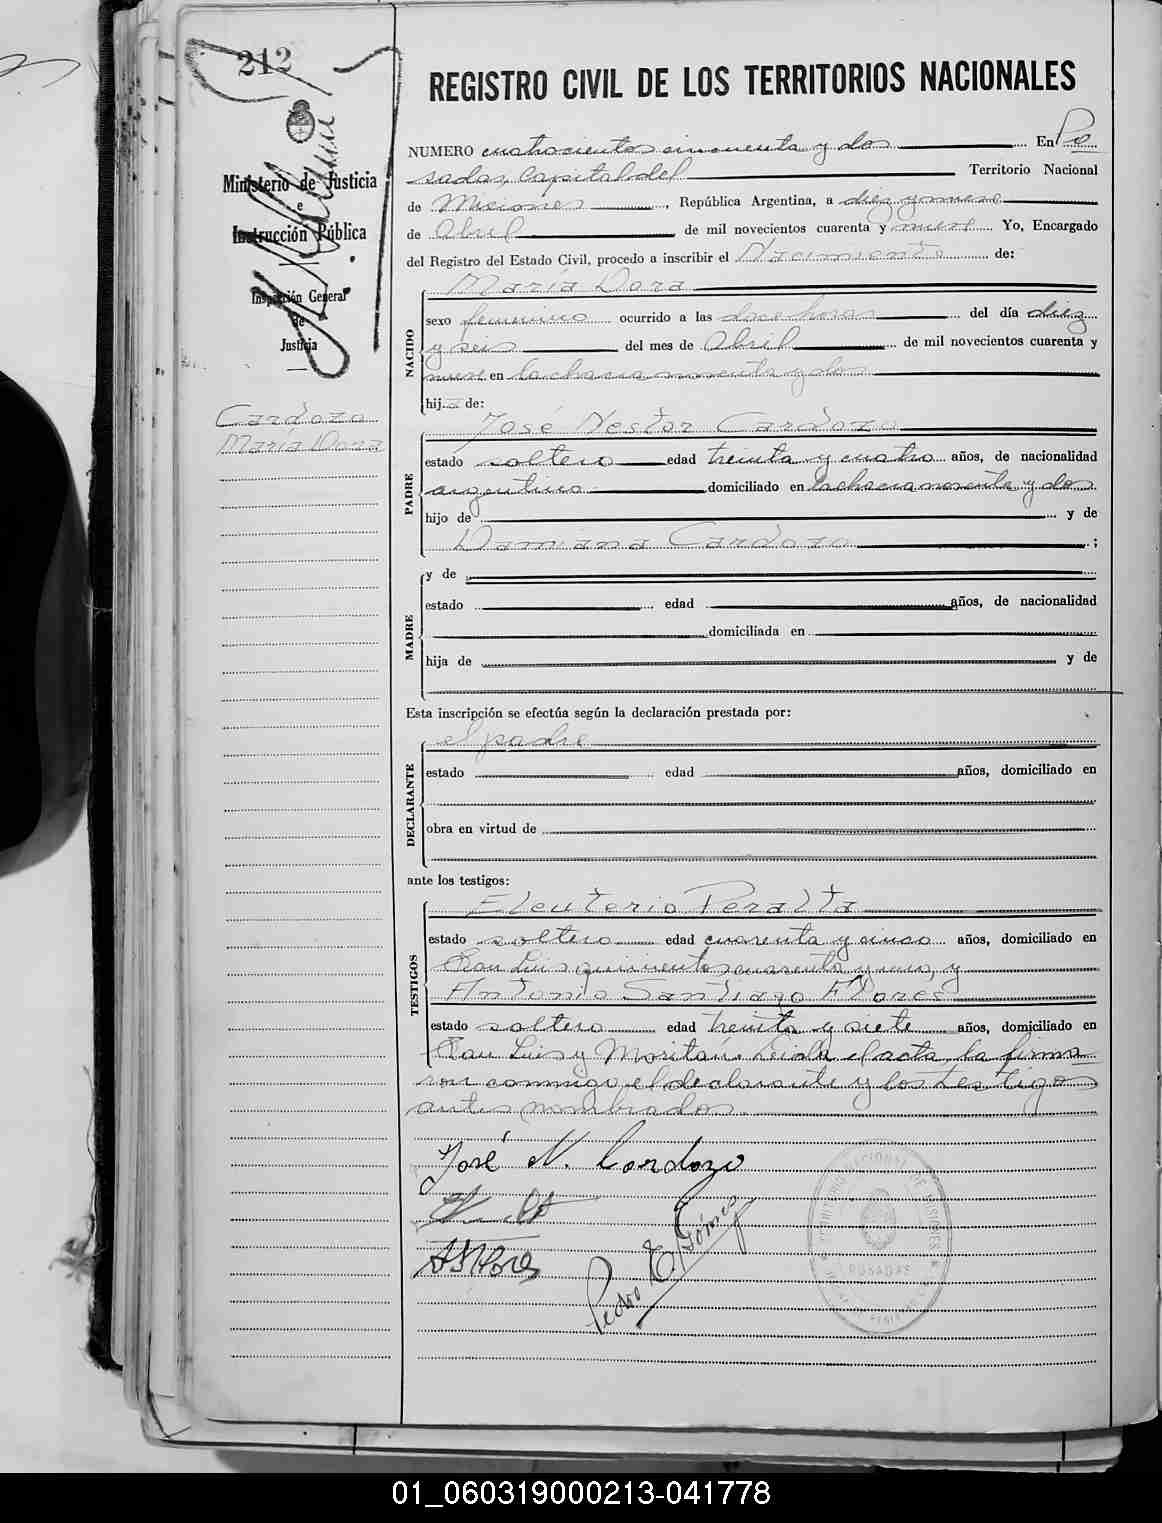 212
REGISTRO CIVIL DE LOS TERRITORIOS NACIONALES
Ministerio de Justicia
e
Instrucción Pública
Inspección General
de
Justicia
Cardozo
María Dora
NUMERO cuatrocientos cincuenta y dos En Po
sadas, Capital del Territorio Nacional
de Misiones, República Argentina, a diez y nueve
de Abril de mil novecientos cuarenta y nueve Yo, Encargado
del Registro del Estado Civil, procedo a inscribir el Nacimiento de:
NACIDO
María Dora
sexo femenino ocurrido a las doce horas del día diez
y seis del mes de Abril de mil novecientos cuarenta y
nueve en la chacra noventa y dos
hija de:
PADRE
José Nestor Cardozo
estado soltero edad treinta y cuatro años, de nacionalidad
argentino domiciliado en la chacra noventa y dos
hijo de y de
Damiana Cardozo ;
MADRE
y de
estado edad años, de nacionalidad
domiciliada en
hija de y de
Esta inscripción se efectúa según la declaración prestada por:
DECLARANTE
el padre
estado edad años, domiciliado en
obra en virtud de
ante los testigos:
TESTIGOS
Eleuterio Peralta
estado soltero edad cuarenta y cinco años, domiciliado en
San Luis quinientos cuarenta y uno, y
Antonio Santiago Flores
estado soltero edad treinta y siete años, domiciliado en
San Luis y Moritán. Leida el acta, la firma
ron conmigo, el declarante y los testigos
antes nombrados.
José N. Cardozo
ASFlores
Pedro E. Gómez
POSADAS
01_060319000213-041778